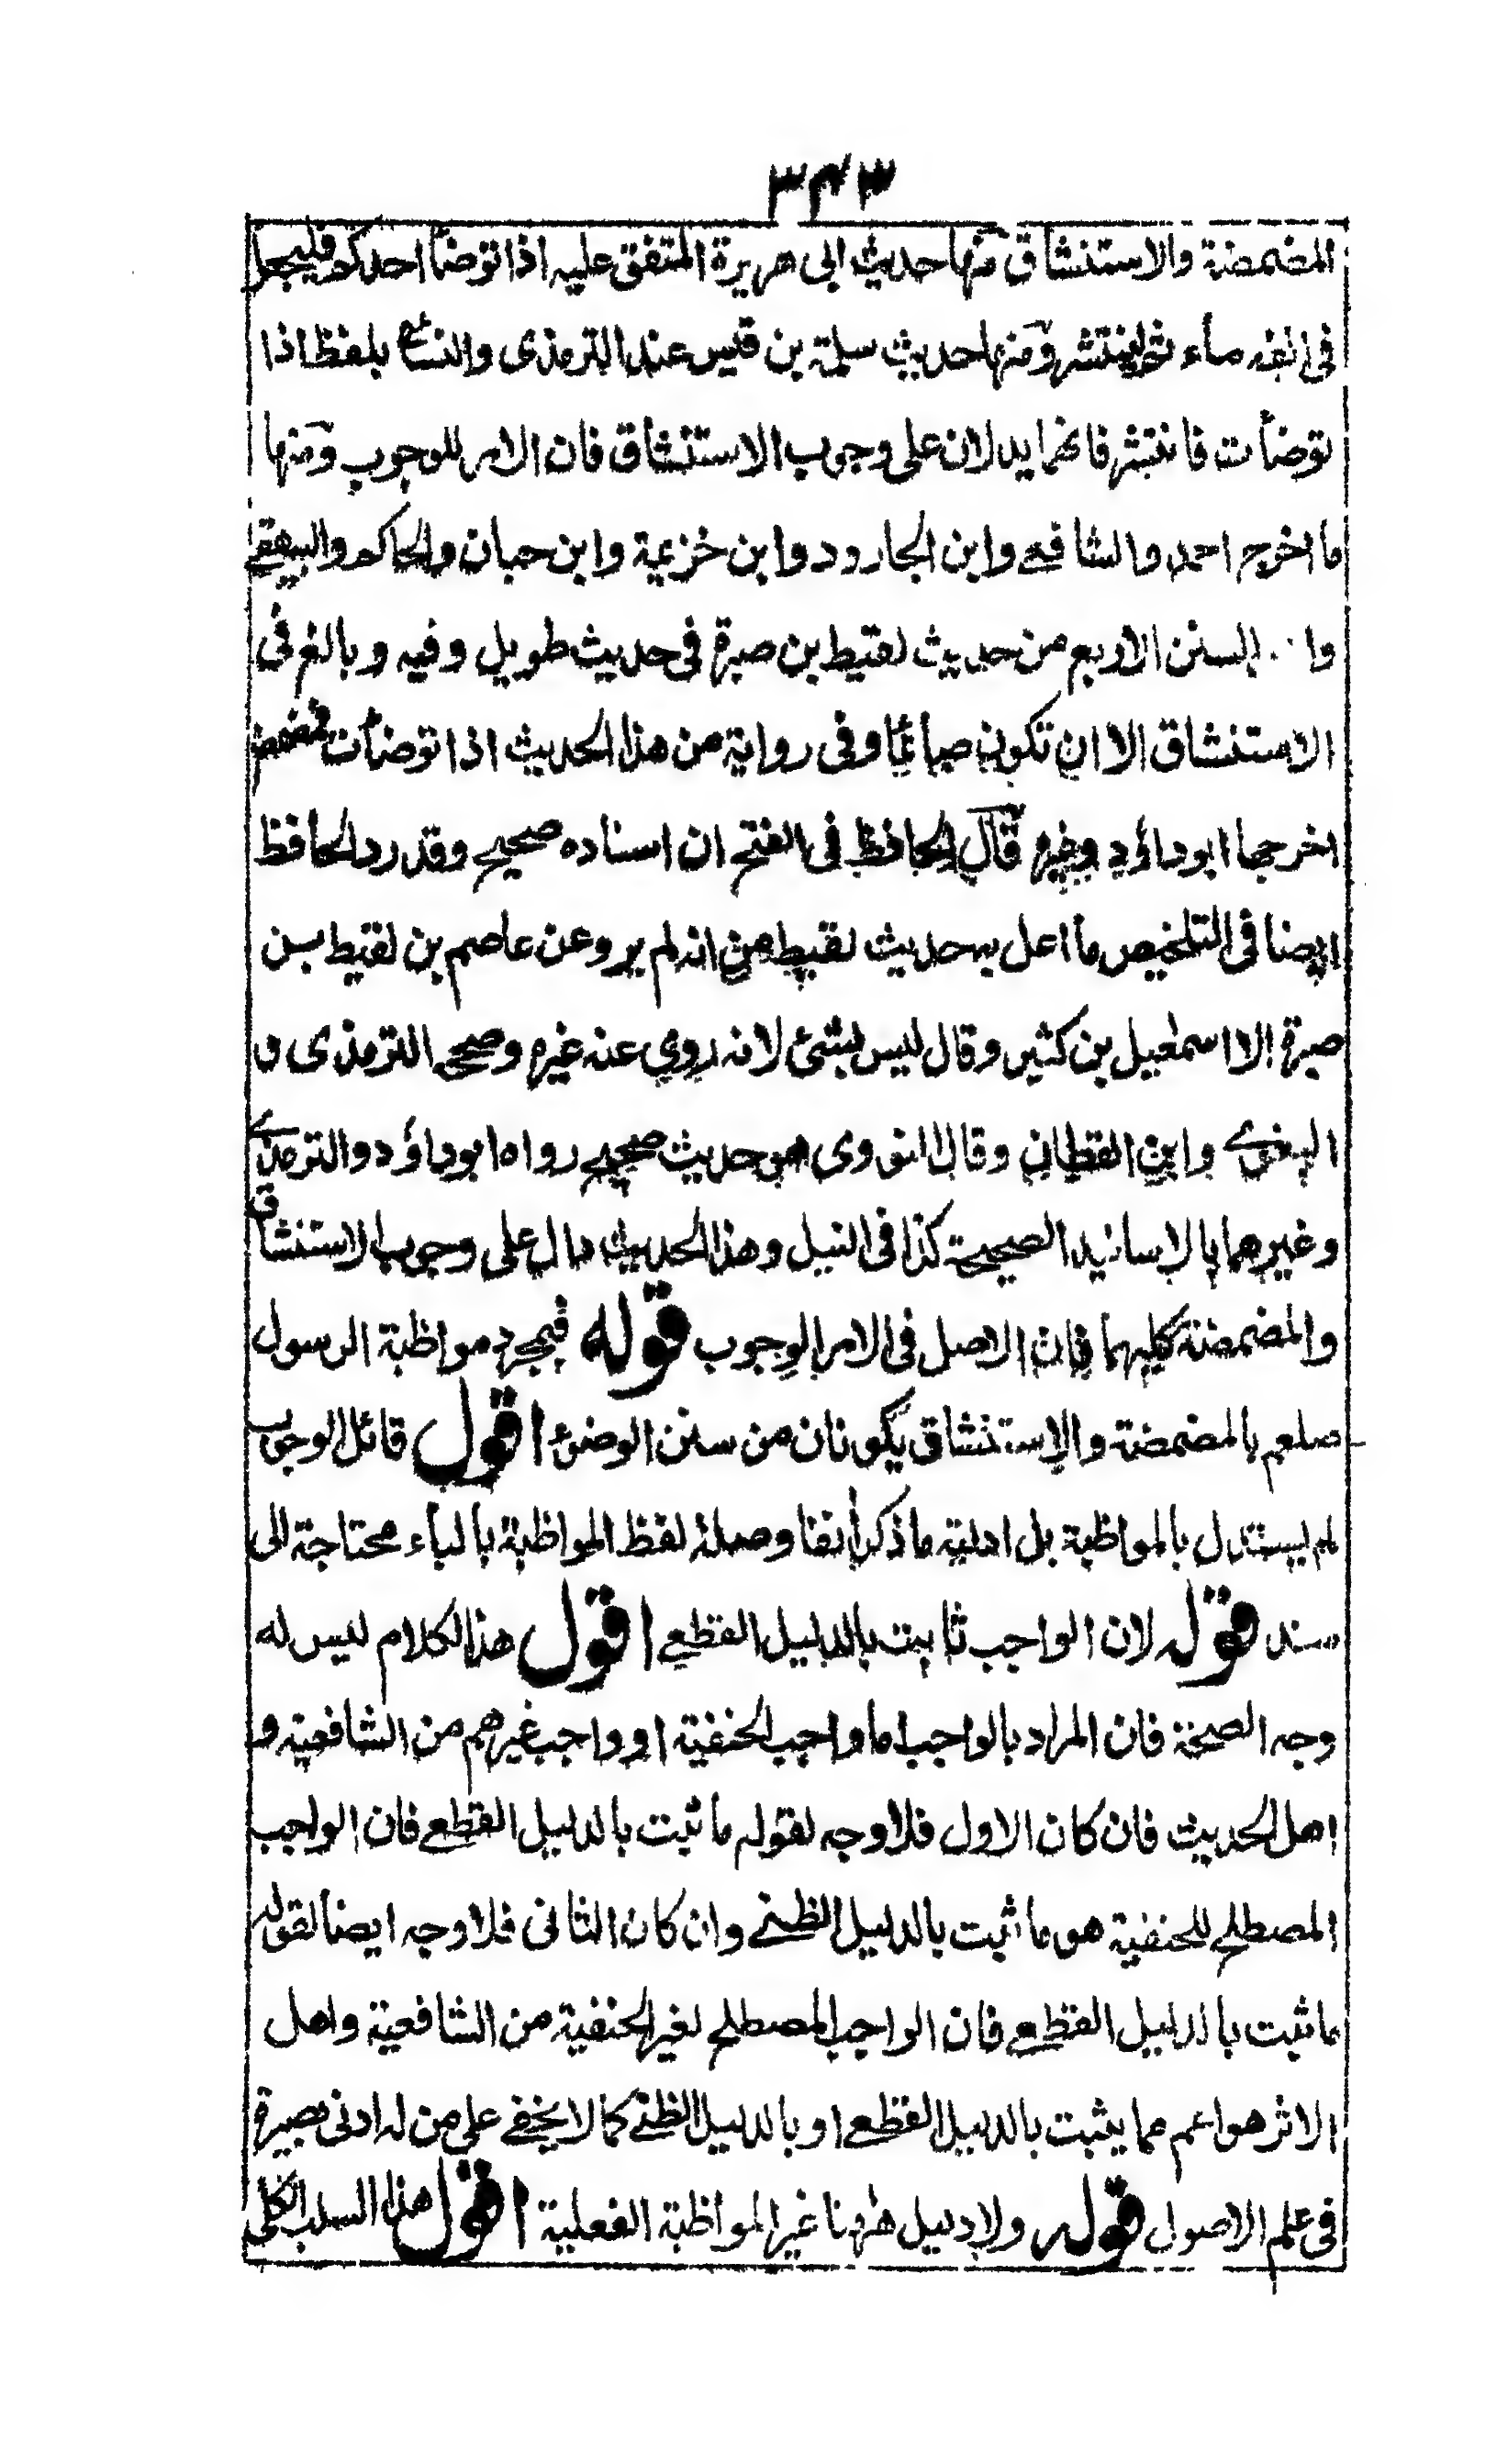 ٣٤٣
المضمضة والاستنشاق منها حديث ابى هريرة المتفق عليه اذا توضأ احدكم فليجعل
فى انفه ماء ثم لينتثر ومنها حديث سلمة بن قيس عند الترمذى والنسائي بلفظ اذا
توضأت فانتثر فانهما يدلان على وجوب الاستنشاق فان الامر للوجوب ومنها
ما اخرج احمد والشافعے وابن الجارود وابن خزيمة وابن حبان والحاكم والبيهقے
وا السنن الاربع من حديث لقيط بن صبرة فى حديث طويل وفيه وبالغ فى
الاستنشاق الا ان تكون صائما وفى رواية من هذا الحديث اذا توضأت فمضمض
اخرجها ابوداؤد وغيره قال الحافظ فى الفتح ان اسناده صحيح وقد رد الحافظ
ايضا فى التلخيص ما اعل به حديث لقيط من انه لم يرو عن عاصم بن لقيط بن
صبرة الا اسمعيل بن كثير وقال ليس بشئ لانه روي عنه غيره وصححه الترمذى و
البغوے وابن القطان وقال النووى هو حديث صحيح رواه ابوداؤد والترمذے
وغيرهما بالاسانيد الصحيحة كذا فى النيل وهذا الحديث دال على وجوب الاستنشاق
والمضمضة كليهما فان الاصل فى الامر الوجوب قوله فبمجرد مواظبة الرسول
صلعم بالمضمضة والاستنشاق يكونان من سنن الوضوء اقول قائل الوجوب
لم يستدل بالمواظبة بل ادلته ما ذكر أنفا وصلة لفظ المواظبة بالباء محتاجة الى
سند قوله لان الواجب ثابت بالدليل القطعے اقول هذا الكلام ليس له
وجه الصحة فان المراد بالواجب اما واجب الحنفية او واجب غيرهم من الشافعية و
اهل الحديث فان كان الاول فلا وجه لقوله ما ثبت بالدليل القطعے فان الواجب
المصطلح للحنفية هو ما ثبت بالدليل الظنے وان كان الثانى فلا وجه ايضا لقوله
ما ثبت بالدليل القطعے فان الواجب المصطلح لغير الحنفية من الشافعية واهل
الاثر هو اعم مما يثبت بالدليل القطعے او بالدليل الظنے كما لا يخفے على من له ادنى بصيرة
فى علم الاصول قوله ولا دليل ههنا غير المواظبة الفعلية اقول هذا السلب الكلى